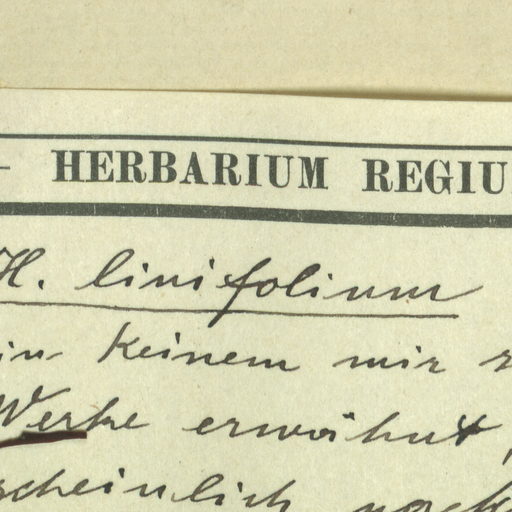 — HERBARIUM REGIU
H. linifolium
in keinem mir
Werke erwähnt,
scheinlich noch